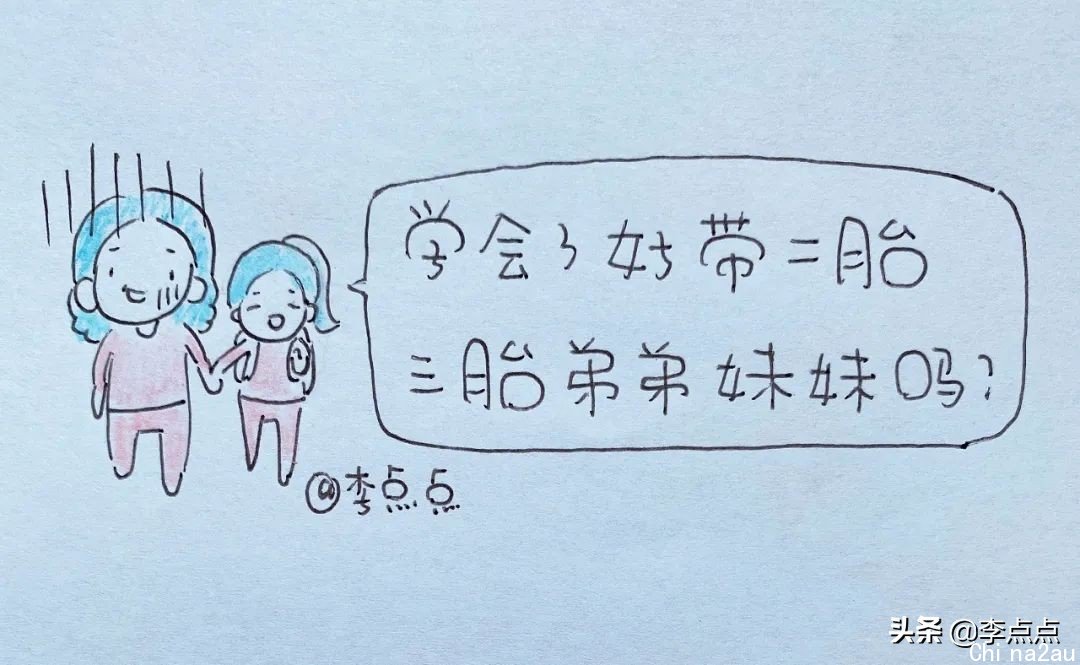 学会了好带二胎
三胎弟弟妹妹吗?
@李点点
头条 @李点点
Chi na2au